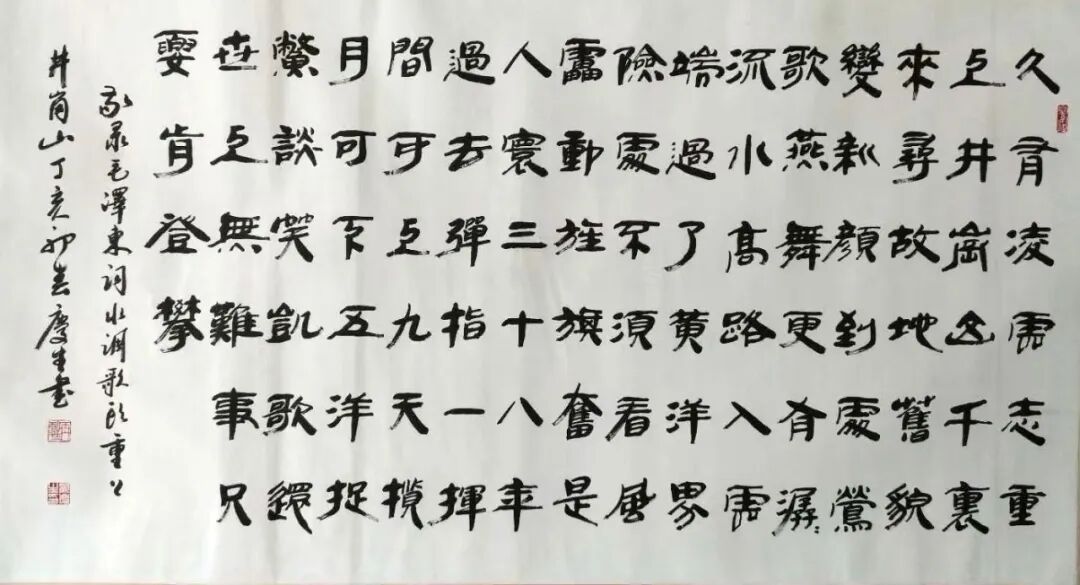 久有凌雲志重
上井崗山千裏
來尋故地舊貌
變新顏到處鶯
歌燕舞更有潺々
流水高路入雲
端過了黃洋界
險處不須看風
雷動旌旗奮是
人寰三十八年
過去彈指一揮
間可上九天攬
月可下五洋捉
鱉談笑凱歌還
世上無難事只
要肯登攀
敬录毛澤東詞水調歌頭重上
井岗山丁亥初春慶生書